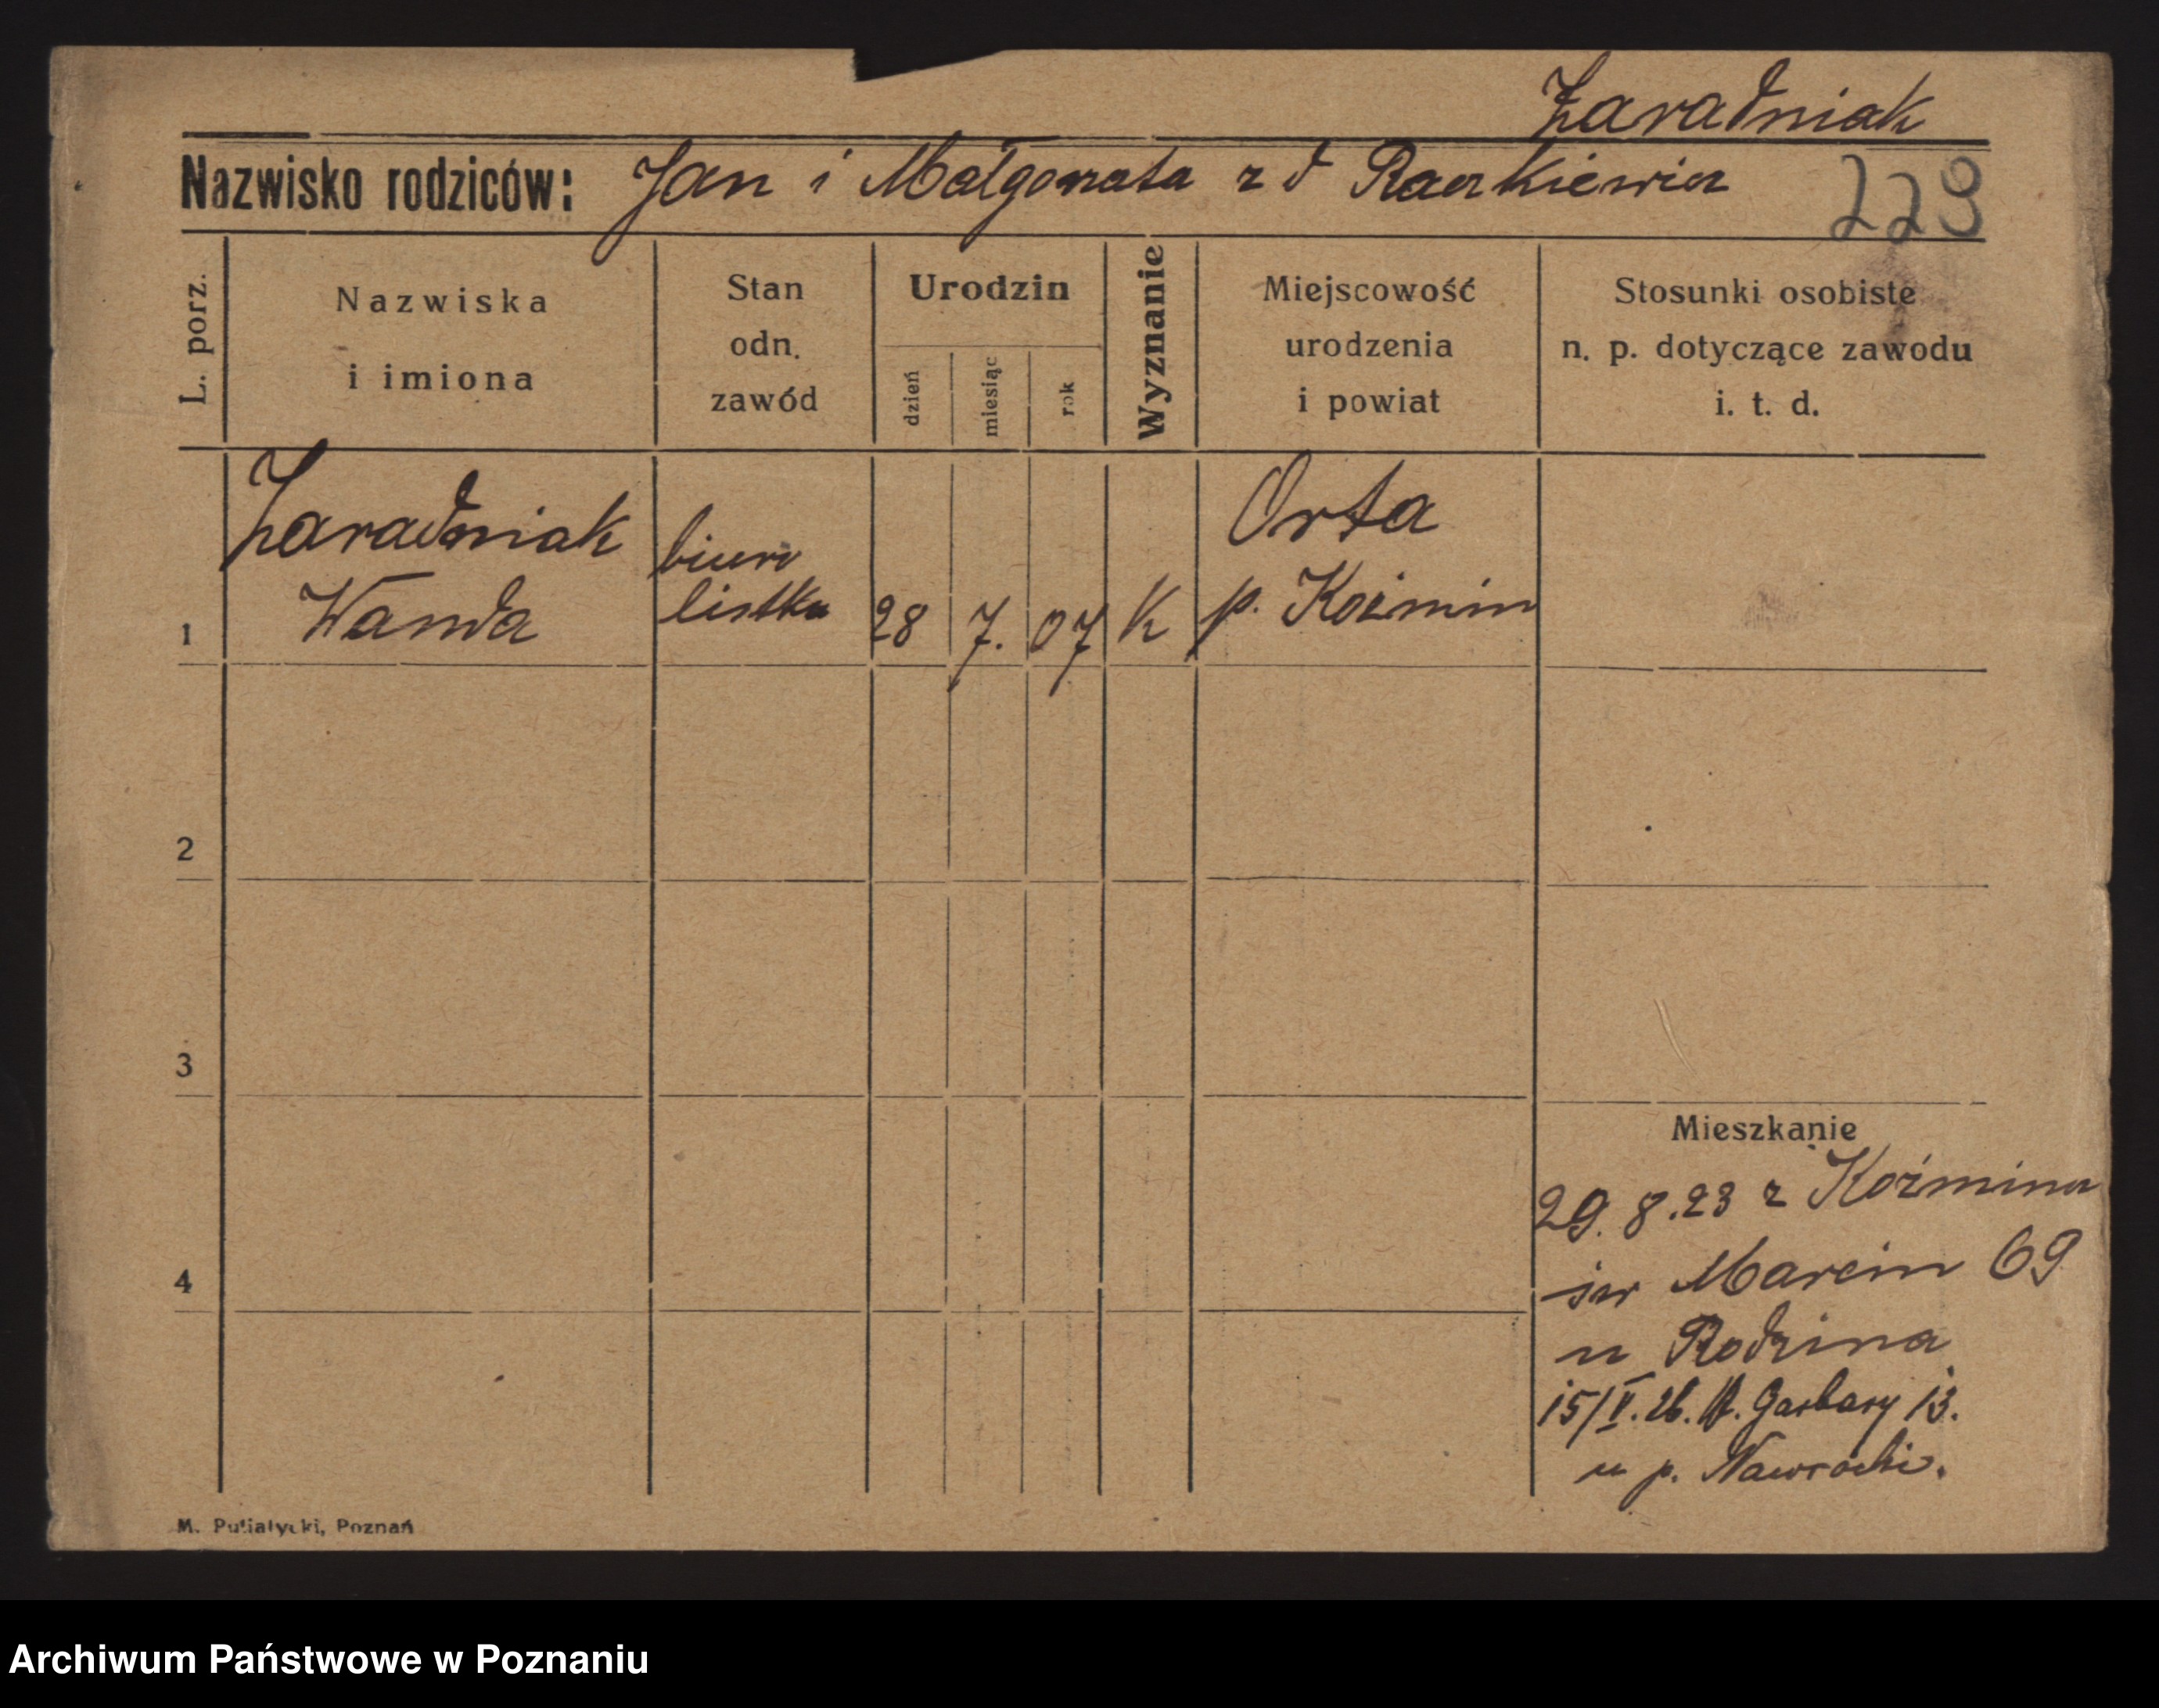 Zaradniak
Nazwisko rodziców: Jan i Małgorzata z d
229
L. porz.
Nazwiska
i imiona
Stan
odn.
zawód
Urodzin
dzień
miesiąc
rok
Wyznanie
Miejscowość
urodzenia
i powiat
Stosunki osobiste
n. p. dotyczące zawodu
i. t. d.
1
Zaradniak
Wanda
biuro
listka
28
7.
07
K
Orla
p. Koźmin
2
3
4
Mieszkanie
29. 8. 23 z Koźmina
św Marcin 69
u Rodzina
15/V. 26. W. Garbary 13.
u p. Nawrocki.
M. Putiatycki, Poznań
Archiwum Państwowe w Poznaniu